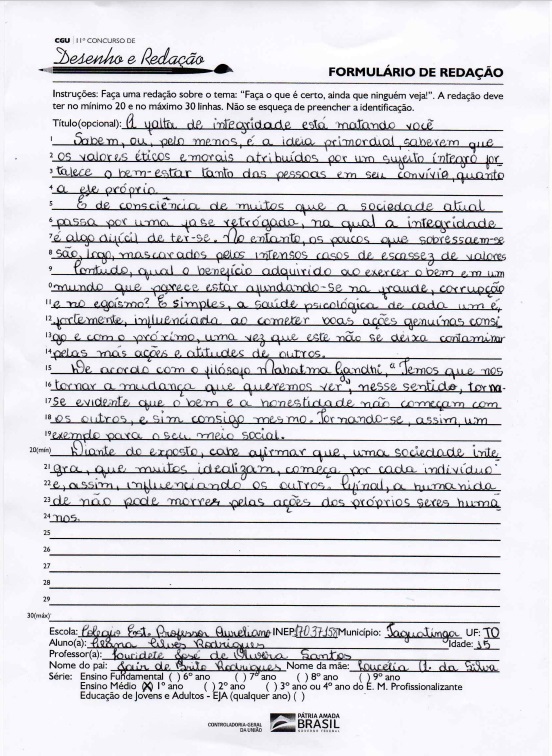 CGU | 11º CONCURSO DE
Desenho e Redação
FORMULÁRIO DE REDAÇÃO
Instruções: Faça uma redação sobre o tema: "Faça o que é certo, ainda que ninguém veja!". A redação deve
ter no mínimo 20 e no máximo 30 linhas. Não se esqueça de preencher a identificação.
Título(opcional): A falta de integridade está matando você
1 Sabem, ou, pelo menos, é a ideia primordial saberem que
2 os valores éticos e morais atribuídos por um sujeito íntegro for
3 talece o bem-estar tanto das pessoas em seu convívio, quanto
4 a ele próprio.
5 É de consciência de muitos que a sociedade atual
6 passa por uma fase retrógada, na qual a integridade
7 é algo difícil de ter-se. No entanto, os poucos que sobressaem-se
8 são, logo, mascarados pelos intensos casos de escassez de valores
9 Contudo, qual o benefício adquirido ao exercer o bem em um
0 mundo que parece estar afundando-se na fraude, corrupção
11 e no egoísmo? É simples, a saúde psicológica de cada um é,
12 fortemente, influenciada ao cometer boas ações genuínas consi
13 go e com o próximo, uma vez que este não se deixa contaminar
14 pelas más ações e atitudes de outros.
15 De acordo com o filósofo Mahatma Gandhi, "Temos que nos
16 tornar a mudança que queremos ver", nesse sentido, torna-
17 se evidente que o bem e a honestidade não começam com
18 os outros, e sim consigo mesmo. Tornando-se, assim, um
19 exemplo para o seu meio social.
20(min) Diante do exposto, cabe afirmar que, uma sociedade ínte
21 gra, que muitos idealizam, começa por cada indivíduo
22 e, assim, influenciando os outros. Afinal, a humanida
23 de não pode morrer pelas ações dos próprios seres huma
24 nos.
25
26
27
28
29
30(máx)
Escola: Colegio Est. Professor Aureliano INEP: 17037158 Município: Taguatinga UF: TO
Aluno(a): Silva Rodrigues Idade: 15
Professor(a): José de Oliveira Santos
Nome do pai: Jair de Brito Rodrigues Nome da mãe: da Silva
Série: Ensino Fundamental ( ) 6º ano ( ) 7º ano ( ) 8º ano ( ) 9º ano
Ensino Médio (X) 1º ano ( ) 2º ano ( ) 3º ano ou 4º ano do E. M. Profissionalizante
Educação de Jovens e Adultos - EJA (qualquer ano) ( )
CONTROLADORIA-GERAL
DA UNIÃO
PÁTRIA AMADA
BRASIL
GOVERNO FEDERAL